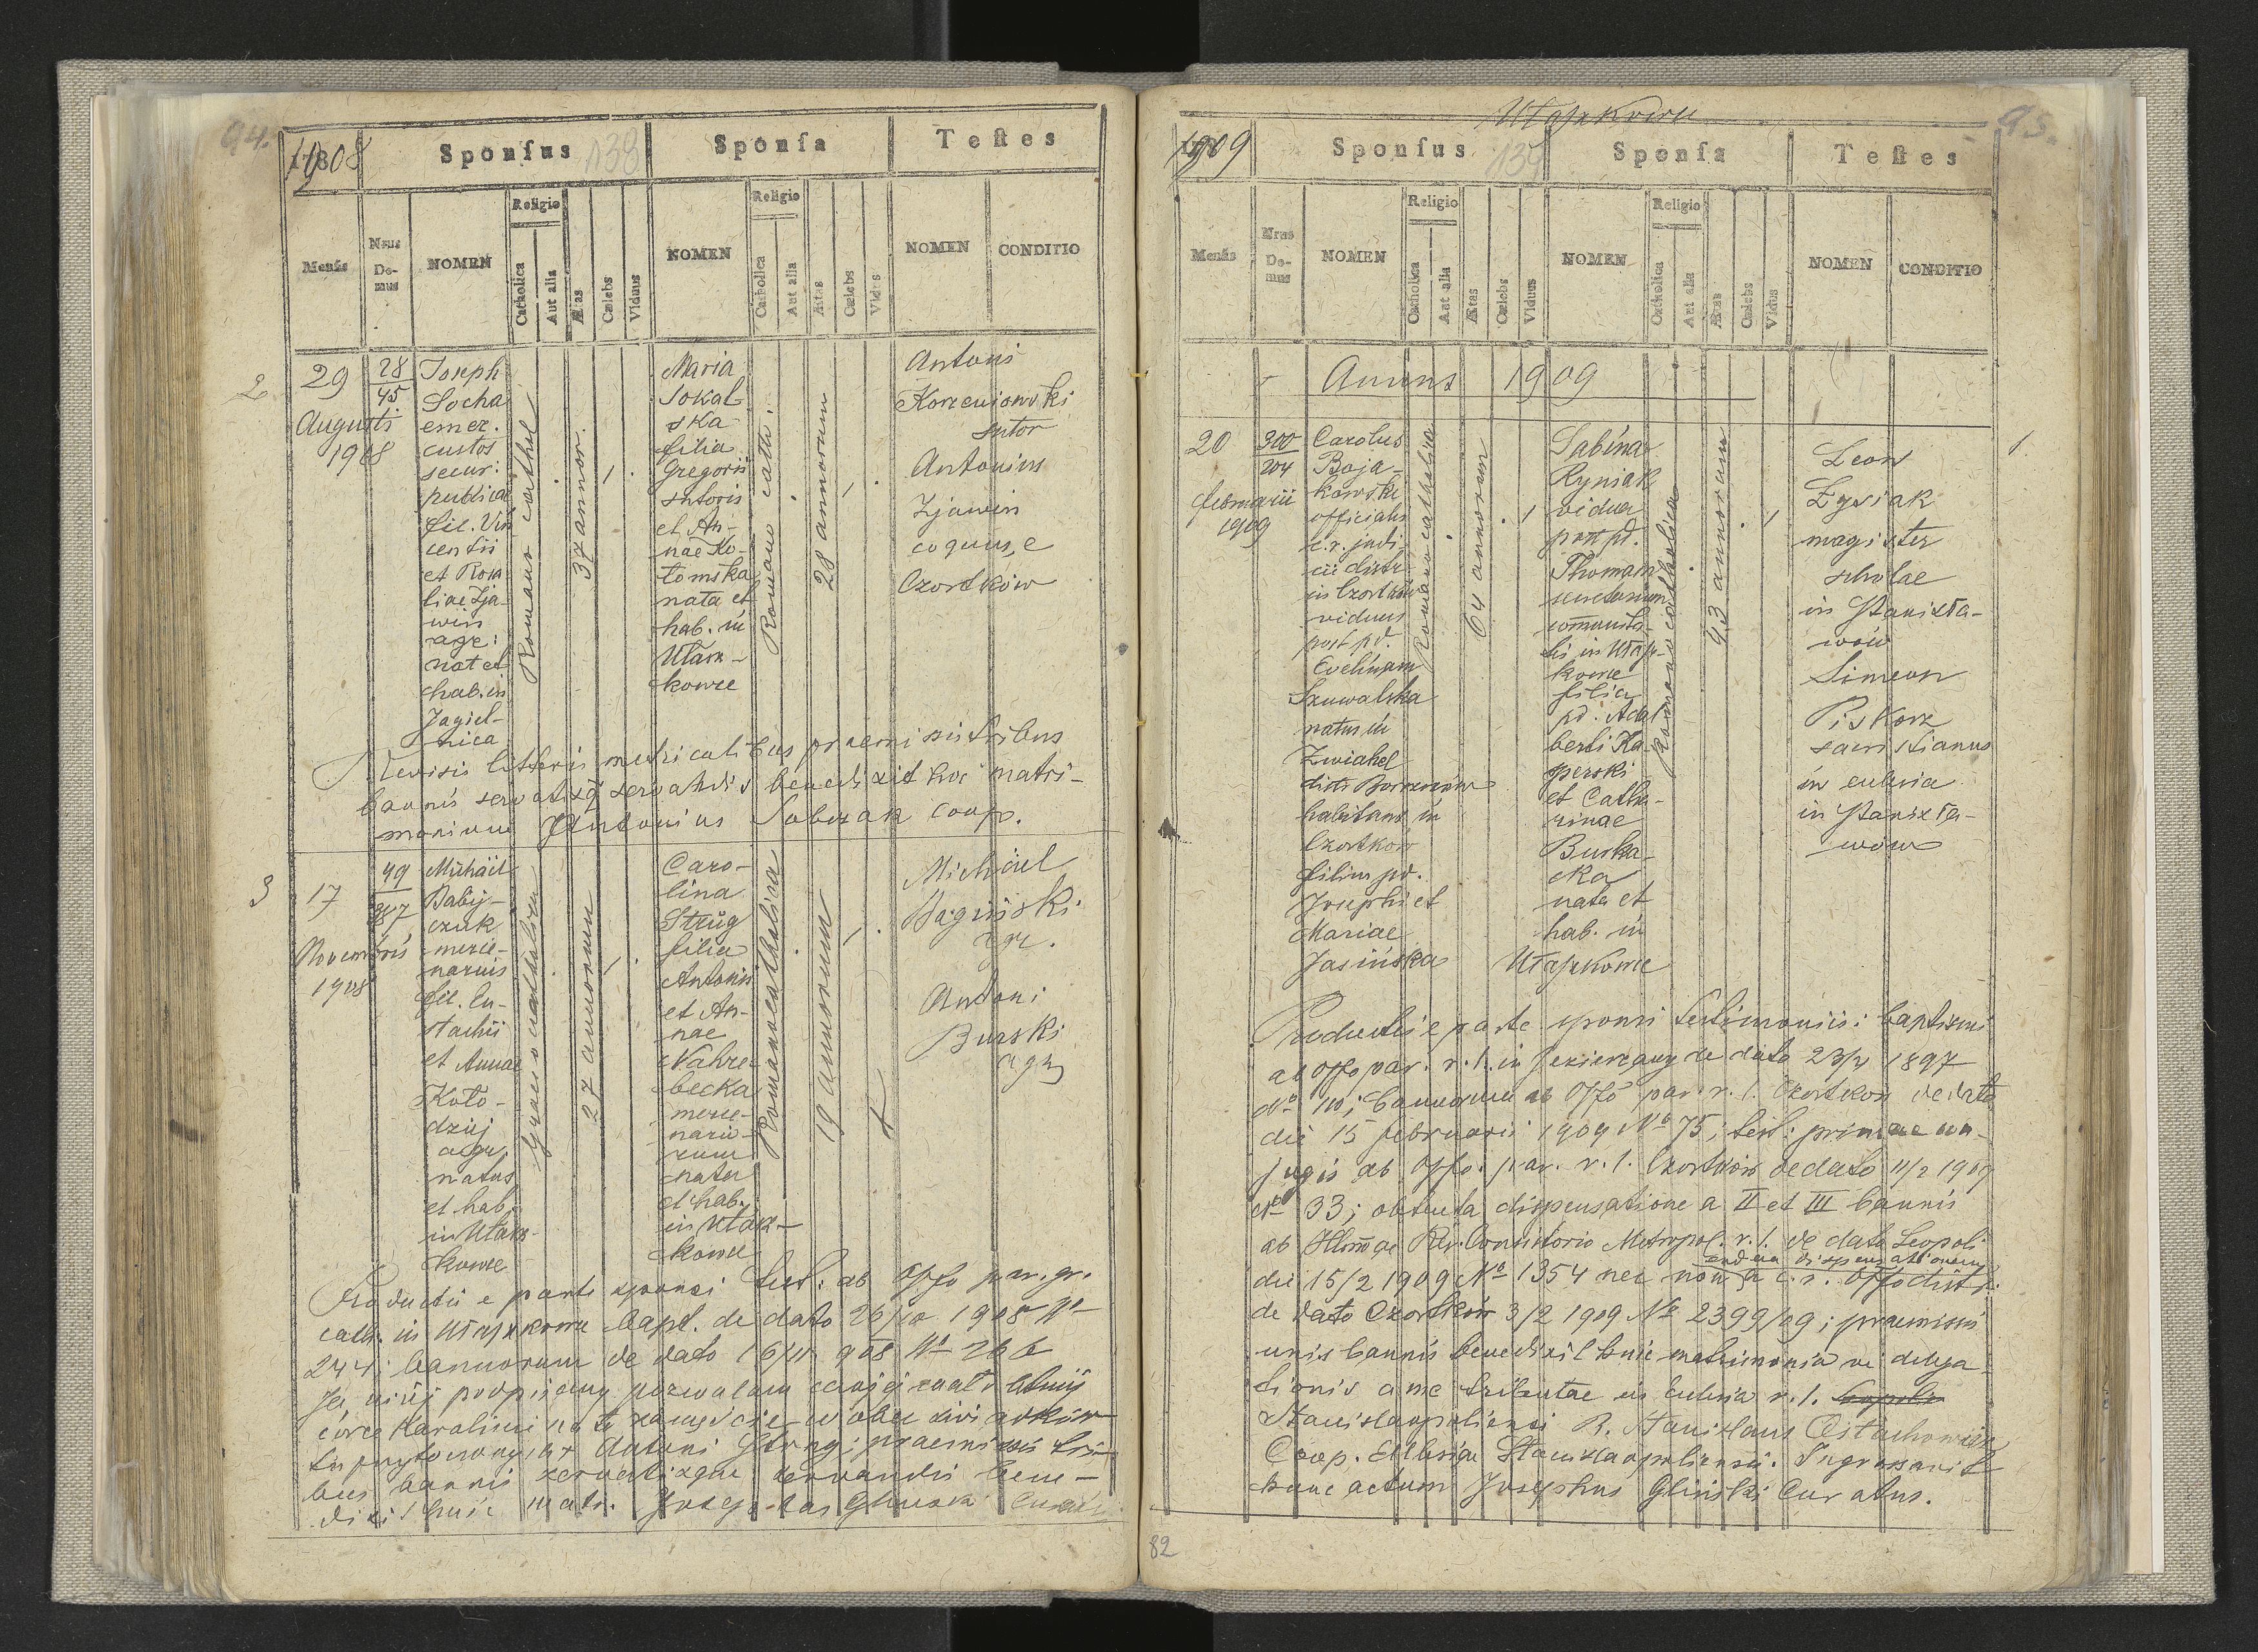 94.
1908
Sponſus
138
Sponſa
Teſtes
Menſis
Nrus Do-mus
NOMEN
Religio
Catholica
Aut alia
Ætas
Cælebs
Viduus
NOMEN
Religio
Catholica
Aut alia
Ætas
Cælebs
Vidua
NOMEN
CONDITIO
2
29
Augusti
1908
28
45
Joseph
Socha
emer.
custos
secur:
publica
fil. Vin
centii
et Rosa
liae Zja-
win
agr:
nat et
hab. in
Jagiel-
nica
Romano cathol
37 annor.
1
Maria
Sokal
ska
filia
Gregorii
sutoris
et An-
nae Ko-
tomska
nata et
hab. in
Utasz-
kowce
Romano cath.
28 annorum
1
Antoni
Korzeniowski
sutor
Antonius
Zjawin
coquus, e
Czortków
Revisis litteris metricalibus praemissis tribus
bannis servatisq servandis benedixit hoc matri-
monium Antonius Sobczak coop.
3
17
Novembris
1908
49
387
Michäil
Babij-
czuk
merce-
narius
fil. Eu-
stachii
et Annae
Koto-
dzij
agr.
natus
et hab.
in Utasz-
kowce
Graeco catholicus
27 annorum
1
Caro-
lina
Strug
filia
Antonii
et An-
nae
Nahre-
becka
merce-
nario-
rum
nata
et hab.
in Utasz-
kowce
Romano catholica
19 annorum
1
Michäel
Bagiński
agr.
Antoni
Burski
agr
Productis e parte sponsi test: ab Offo par. gr.
cath. in Utaszkowce bapt. de dato 26/10 1908 No
244; bannorum de dato 16/11 908 No 266
Ja niżej podpisany pozwalam mojej małoletniej
córce Karolinie na to zamęście w obec świadków
tu przytomnych Antoni Strug; praemissis tri-
bus bannis servatisque servandis bene-
dixi huic matr. Josephus Gliński Curatus
Utaszkowce
95.
1909
Sponſus
139
Sponſa
Teſtes
Menſis
Nrus Do-mus
NOMEN
Religio
Catholica
Aut alia
Ætas
Cælebs
Viduus
NOMEN
Religio
Catholica
Aut alia
Ætas
Cælebs
Vidua
NOMEN
CONDITIO
Annus 1909
1.
20
februarii
1909
300
204
Carolus
Boja-
kowski
officialis
c. r. judi-
cii distr.
in Czortków
viduus
post pd.
Evelinam
Szuwalska
natus in
Zwiahel
distr Borszczów
habitans in
Czortków
filius pd.
Josephi et
Mariae
Jasińska
Romano catholica
64 annorum
1
Sabina
Ryniak
vidua
post pd.
Thomam
secretarium
communita-
tis in Utasz-
kowce
filia
pd. Adal-
berti Ka-
perski
et Catha-
rinae
Burha-
cka
nata et
hab. in
Utaszkowce
Romano catholica
43 annorum
1
Leon
Łysiak
magister
scholae
in Stanisła-
wów
Simeon
Piskorz
sacristianus
in ecclesia
in Stanisła-
wów
Productis e parte sponsi testimoniis: baptismi
ab Offo par. r. l. in Jezierzany de dato 23/4 1897
No 110; bannorum ab Offo par. r. l. Czortków de dato
die 15 februarii 1909 No 75; test: primae con-
jugis ab Offo. par. r. l. Czortków de dato 11/2 1909
No 33; obtenta dispensatione a II et III bannis
ab Illmo ac Rev. Consistorio Metropol. r. l. de dato Leopoli
die 15/2 1909 No 1354 nec non eadem dispensationem a c. r. Offo distr.
de dato Czortków 3/2 1909 No 2399/09; praemissis
unis bannis benedixit huic matrimonio vi delega-
tionis a me tributae in Ecclesia r. l.
Stanislaopoliensi R. Stanislaus Ostachowicz
Coop. Ecclesiae Stanislaopoliensis. Ingrossavit
hunc actum Josephus Gliński Curatus.
82